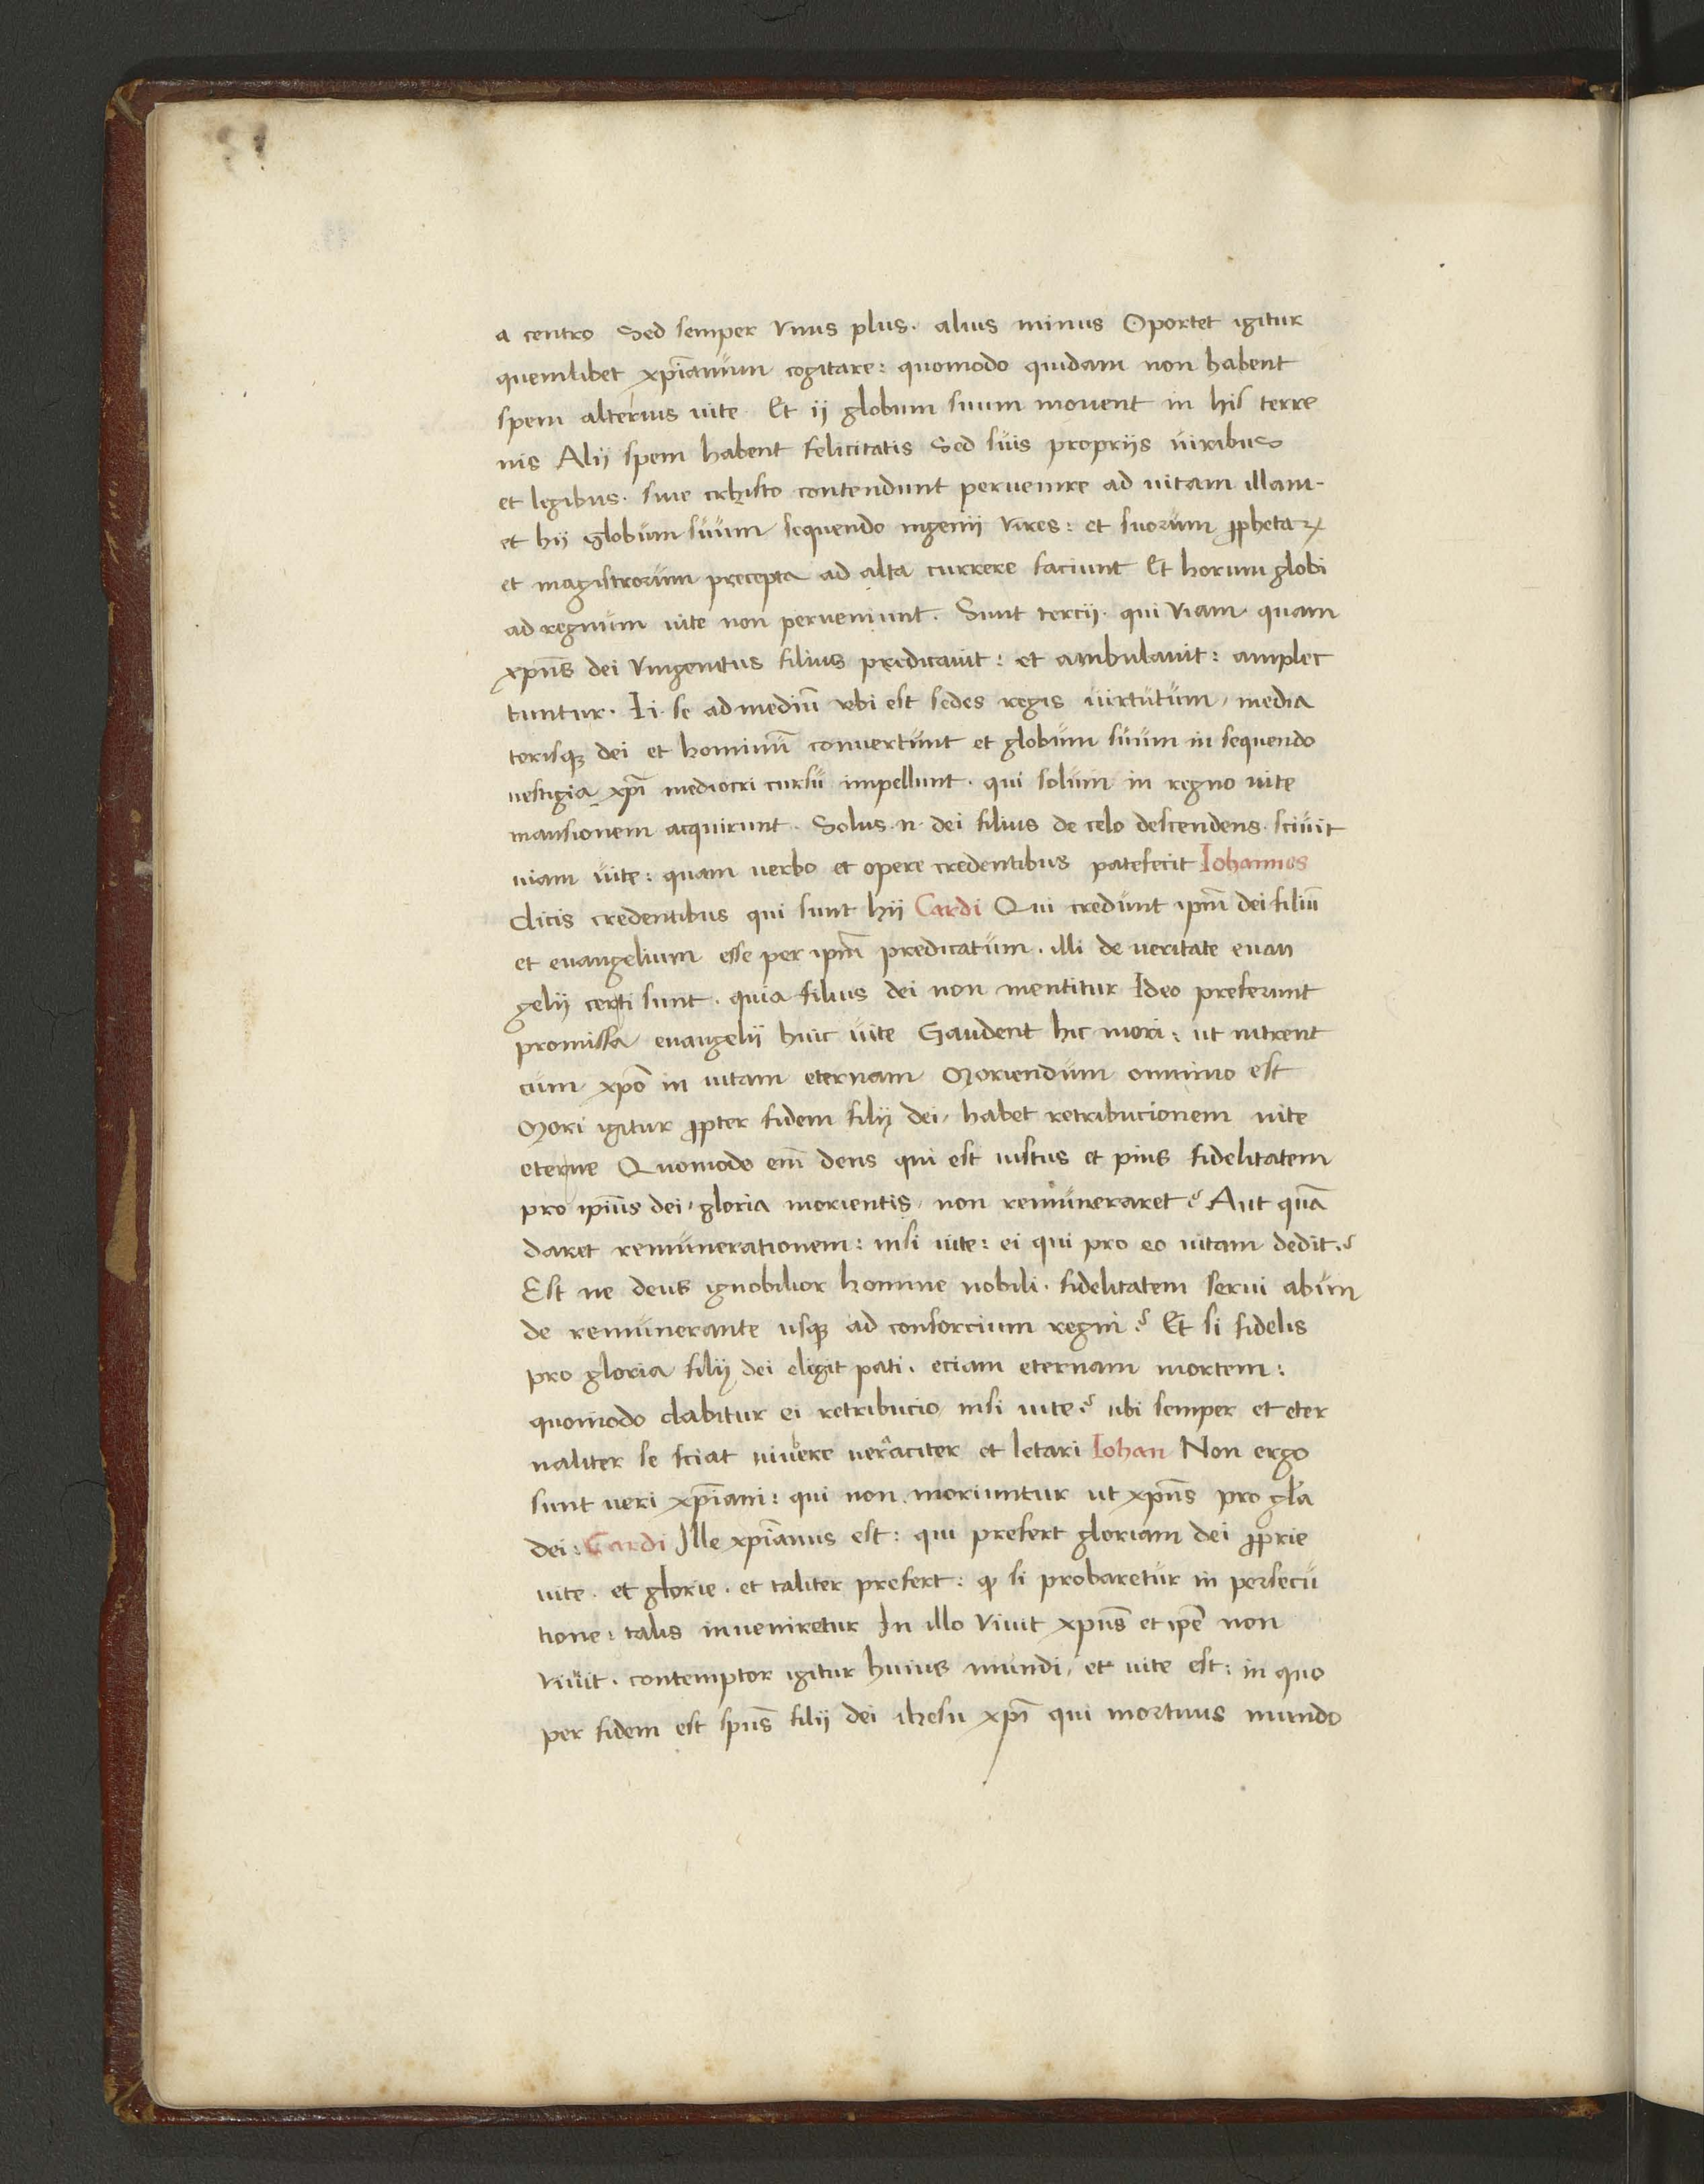 a centro Sed semper vnus plus. alius minus Oportet igitur
quemlibet xp̄ianum cogitare: quomodo quidam non habent
spem alterius uite. Et ij globum suum mouent in his terre
nis Alij spem habent felicitatis Sed suis proprijs uiribus
et legibus. sine crhisto contendunt peruenire ad uitam illam.
et hij globum suum sequendo ingenij vires: et suorum ꝓphetaꝝ
et magistrorum precepta ad alta currere faciunt Et horum globi
ad regnum uite non perueniunt. Sunt tercij. qui viam quam
xpūs dei vnigenitus filius predicauit: et ambulauit: amplec
tuntur. Ii se ad mediū vbi est sedes regis uirtutum, media
torisqꝫ dei et hominū conuertunt et globum suum in sequendo
uestigia xpī mediocri cursu impellunt. qui solum in regno uite
mansionem acquirunt. Solus .n. dei filius de celo descendens. sciuit
uiam uite: quam uerbo et opere credentibus patefecit Iohannes
dicis credentibus qui sunt hij Cardi Qui credunt ipm̄ dei filiū
et euangelium esse per ipm̄ predicatum. illi de ueritate euan
gelij certi sunt. quia filius dei non mentitur Ideo preferunt
promissa euangelij huic uite Gaudent hic mori: ut intrent
cum xpō in uitam eternam Moriendum omnino est
Mori igitur ꝓpter fidem filij dei, habet retribucionem uite
eterne Quomodo em̄ deus qui est iustus et pius fidelitatem
pro ipīus dei, gloria morientis, non remuneraret? Aut quā
daret remunerationem: nisi uite: ei qui pro eo uitam dedit?
Est ne deus ignobilior homine nobili. fidelitatem serui abun
de remunerante usqꝫ ad consorcium regni? Et si fidelis
pro gloria filij dei eligit pati. eciam eternam mortem:
quomodo dabitur ei retribucio nisi uite? ubi semper et eter
naliter se sciat uiuere ueraciter et letari Iohan Non ergo
sunt ueri xp̄iani: qui non moriuntur ut xpūs pro gl̄a
dei: Cardi Ille xp̄ianus est: qui prefert gloriam dei ꝓprie
uite. et glorie. et taliter prefert: ꝙ si probaretur in persecu
tione: talis inueniretur In illo viuit xpūs et ipē non
viuit. contemptor igitur huius mundi, et uite est: in quo
per fidem est spūs filij dei ihesu xpī qui mortuus mundo